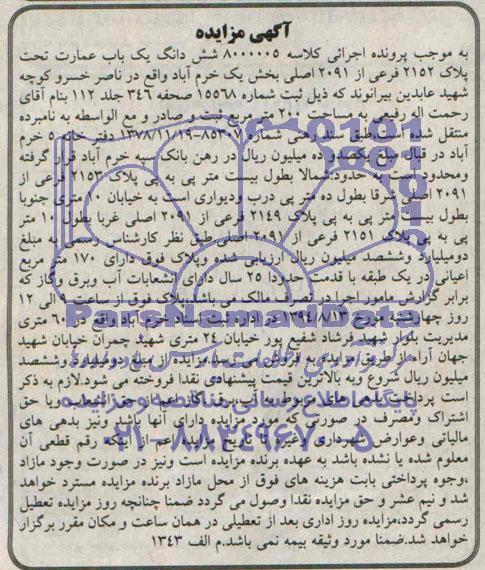 آگهی مزایده
به موجب پرونده اجرائی کلاسه ۸۰۰۰۰۰۵ شش دانگ یک باب عمارت تحت
پلاک ۲۱۵۲ فرعی از ۲۰۹۱ اصلی بخش یک خرم آباد واقع در ناصر خسرو کوچه
شهید عابدین بیرانوند که ذیل ثبت شماره ۱۵۵۶۸ صفحه ۳۴۶ جلد ۱۱۲ بنام آقای
رحمت اله رفیعی به مساحت ۲۰۰ متر مربع ثبت و صادر و مع الواسطه به نامبرده
منتقل شده است طبق سند رهنی شماره ۸۵۳۰۷-۱۳۷۸/۱۱/۱۹ دفتر خانه ۵ خرم
آباد در قبال مبلغ یکصدو ده میلیون ریال در رهن بانک سپه خرم آباد قرار گرفته
ومحدود است به حدود:شمالا بطول بیست متر پی به پی پلاک ۲۱۵۳ فرعی از
۲۰۹۱ اصلی شرقا بطول ده متر پی درب ودیواری است به خیابان ۲۰ متری جنوبا
بطول بیست متر پی به پی پلاک ۲۱۴۹ فرعی از ۲۰۹۱ اصلی غربا بطول ۱۰ متر
پی به پی پلاک ۲۱۵۱ فرعی از ۲۰۹۱ اصلی طبق نظر کارشناس رسمی به مبلغ
دومیلیارد وششصد میلیون ریال ارزیابی شده وپلاک فوق دارای ۱۷۰ متر مربع
اعیانی در یک طبقه با قدمت حدودا ۲۵ سال دارای انشعابات آب وبرق وگاز که
برابر گزارش مامور اجرا در تصرف مالک می باشد.پلاک فوق از ساعت ۹ الی ۱۲
روز چهارشنبه مورخ ۱۳۹۴/۸/۱۳ در اداره ثبت اسناد خرم آباد واقع در ۶۰ متری
مدیریت بلوار شهید فرشاد شفیع پور خیابان ۲۴ متری شهید چمران خیابان شهید
جهان آرا، از طریق مزایده به فروش می رسد.مزایده از مبلغ دومیلیارد وششصد
میلیون ریال شروع وبه بالاترین قیمت پیشنهادی نقدا فروخته می شود.لازم به ذکر
است پرداخت بدهی های مربوط به آب،برق،گاز اعم از حق انشعاب ویا حق
اشتراک ومصرف در صورتی که مورد مزایده دارای آنها باشد ونیز بدهی های
مالیاتی وعوارض شهرداری وغیره تا تاریخ مزایده اعم از اینکه رقم قطعی آن
معلوم شده یا نشده باشد به عهده برنده مزایده است ونیز در صورت وجود مازاد
،وجوه پرداختی بابت هزینه های فوق از محل مازاد برنده مزایده مسترد خواهد
شد و نیم عشر و حق مزایده نقدا وصول می گردد ضمنا چنانچه روز مزایده تعطیل
رسمی گردد،مزایده روز اداری بعد از تعطیلی در همان ساعت و مکان مقرر برگزار
خواهد شد.ضمنا مورد وثیقه بیمه نمی باشد.م الف ۱۳۴۳
ParsNamadData
پایگاه اطلاع رسانی مناقصه و مزایده
۰۲۱-۸۸۳۴۹۶۷۰-۵